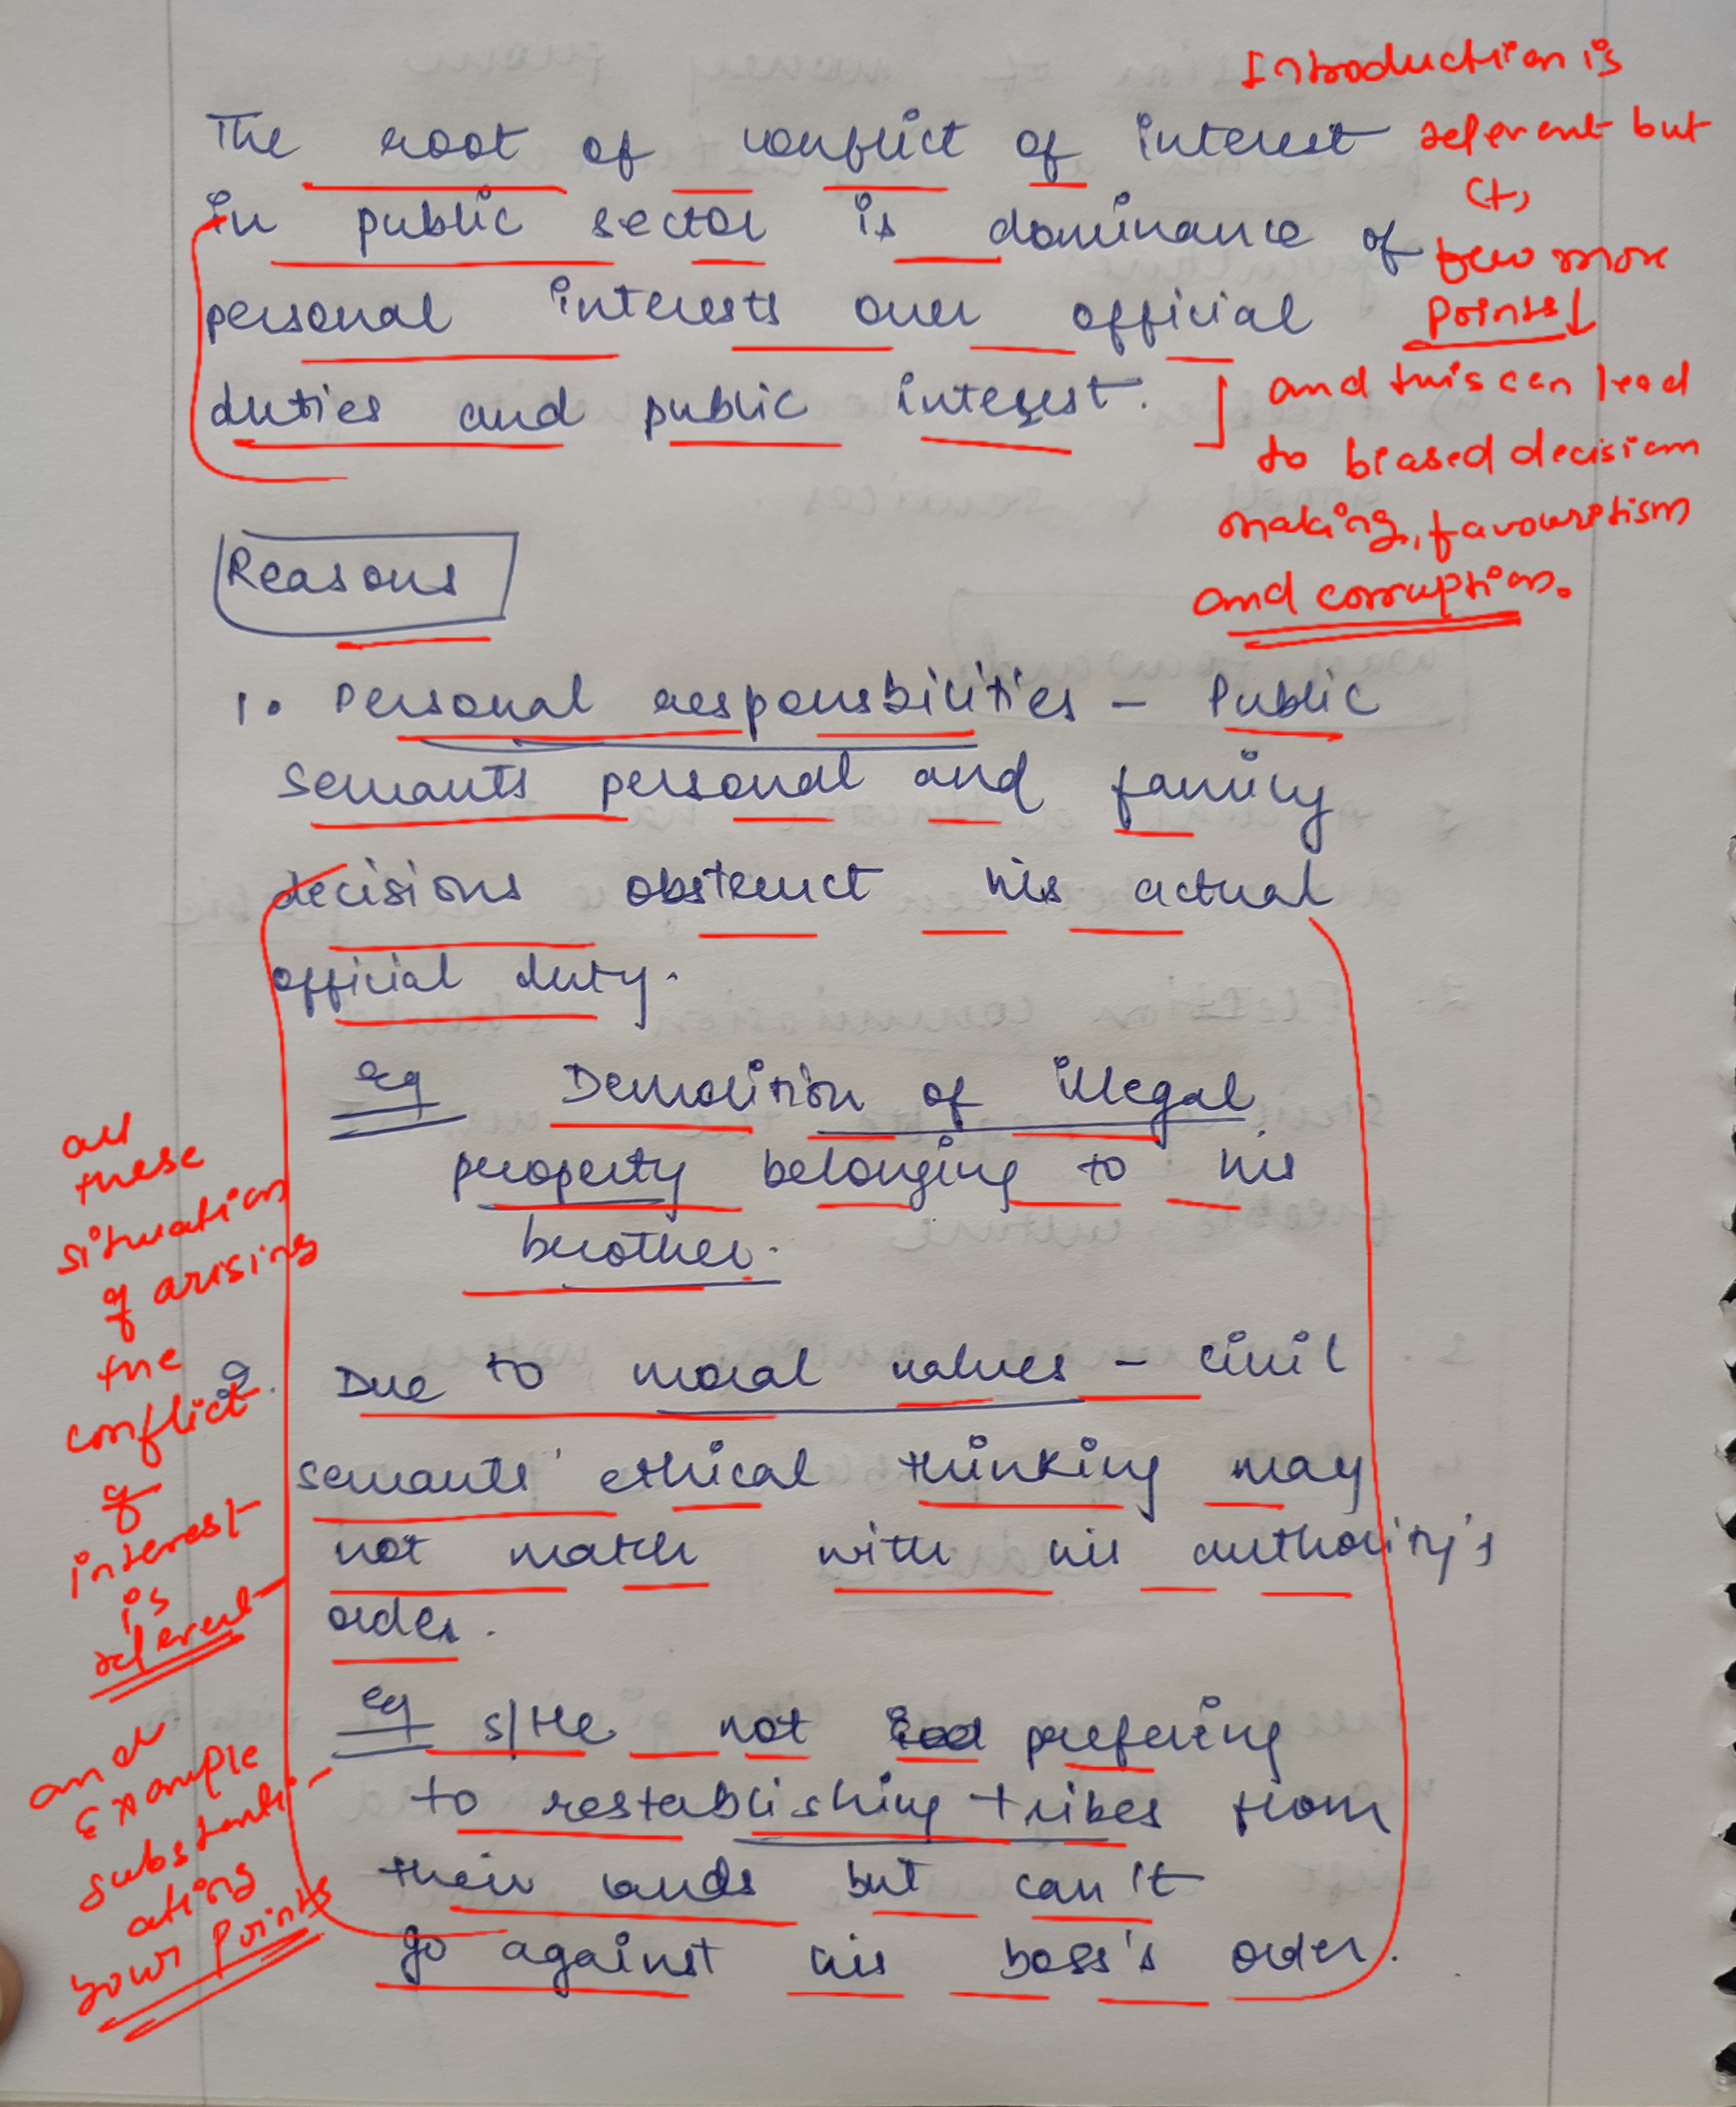 The root of conflict of interest
in public sector is dominance of
personal interests over official
duties and public interest.
Introduction is
relevent but
(+)
few more
points ↓
and this can lead
to biased decision
making, favouretism
and corruption.
Reasons
1. Personal responsbilities - Public
Servants personal and family
decisions obstruct his actual
official duty.
eg Demolition of illegal
property belonging to his
brother.
2. Due to moral values - civil
servants' ethical thinking may
not match with his authority's
order.
eg S/He not prefering
to restablishing tribes from
their lands but can't
go against his boss's order.
all
these
situation
of arising
the
conflict
of
interest
is
relevent
and
Example
substanti-
ating
your points